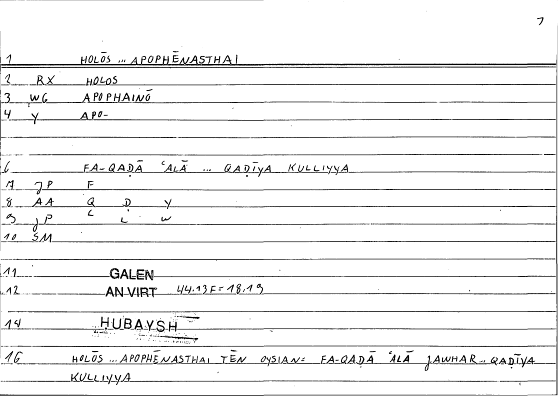 7
1 HOLŌS ... APOPHĒNASTHAI
2 RX HOLOS
3 WG APOPHAINŌ
4 Y APO-
6 FA-QAḌĀ ʿALĀ ... QAḌĪYA KULLIYYA
7 JP F
8 AA Q Ḍ Y
9 JP ʿ L W
10 SM
11 GALEN
12 AN VIRT 44.13F=18.19
14 ḤUBAYSH
16 HOLŌS ... APOPHĒNASTHAI TĒN OYSIAN= FA-QAḌĀ ʿALĀ JAWHAR .. QAḌĪYA
KULLIYYA